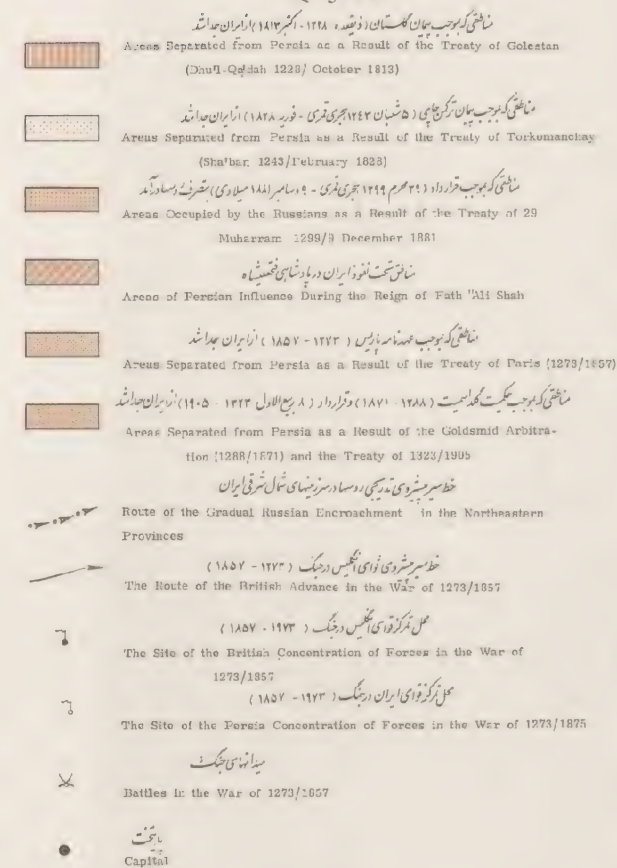 مناطقی که بموجب پیمان گلستان (ذیقعده ۱۲۲۸ - اکتبر ۱۸۱۳) از ایران جدا شد
Areas Separated from Persia as a Result of the Treaty of Golestan
(Dhu'l-Qa'dah 1228/ October 1813)
مناطقی که بموجب پیمان ترکمن چایی (۵ شعبان ۱۲۴۳ هجری قمری - فوریه ۱۸۲۸) از ایران جدا شد
Areas Separated from Persia as a Result of the Treaty of Torkomanchay
(Sha'ban 1243/February 1828)
مناطقی که بموجب قرارداد (۲۹ محرم ۱۲۹۹ هجری قمری - ۹ دسامبر ۱۸۸۱ میلادی) بتصرف روسها درآمد
Areas Occupied by the Russians as a Result of the Treaty of 29
Muharram 1299/9 December 1881
مناطق تحت نفوذ ایران در پادشاهی فتحعلیشاه
Areas of Persian Influence During the Reign of Fath 'Ali Shah
مناطقی که بموجب عهدنامه پاریس (۱۲۷۳ - ۱۸۵۷) از ایران جدا شد
Areas Separated from Persia as a Result of the Treaty of Paris (1273/1857)
مناطقی که بموجب حکمیت گلداسمیت (۱۲۸۸ - ۱۸۷۱) و قرارداد (۸ ربیع الاول ۱۳۲۳ - ۱۹۰۵) از ایران جدا شد
Areas Separated from Persia as a Result of the Goldsmid Arbitra-
tion (1288/1871) and the Treaty of 1323/1905
خط سیر پیشروی تدریجی روسها در سرزمینهای شمال شرقی ایران
Route of the Gradual Russian Encroachment in the Northeastern
Provinces
خط سیر پیشروی قوای انگلیس در جنگ (۱۲۷۳ - ۱۸۵۷)
The Route of the British Advance in the War of 1273/1857
محل تمرکز قوای انگلیس در جنگ (۱۹۷۳ - ۱۸۵۷)
The Site of the British Concentration of Forces in the War of
1273/1857
محل تمرکز قوای ایران در جنگ (۱۹۷۳ - ۱۸۵۷)
The Site of the Persia Concentration of Forces in the War of 1273/1875
میدانهای جنگ
Battles in the War of 1273/1857
پایتخت
Capital